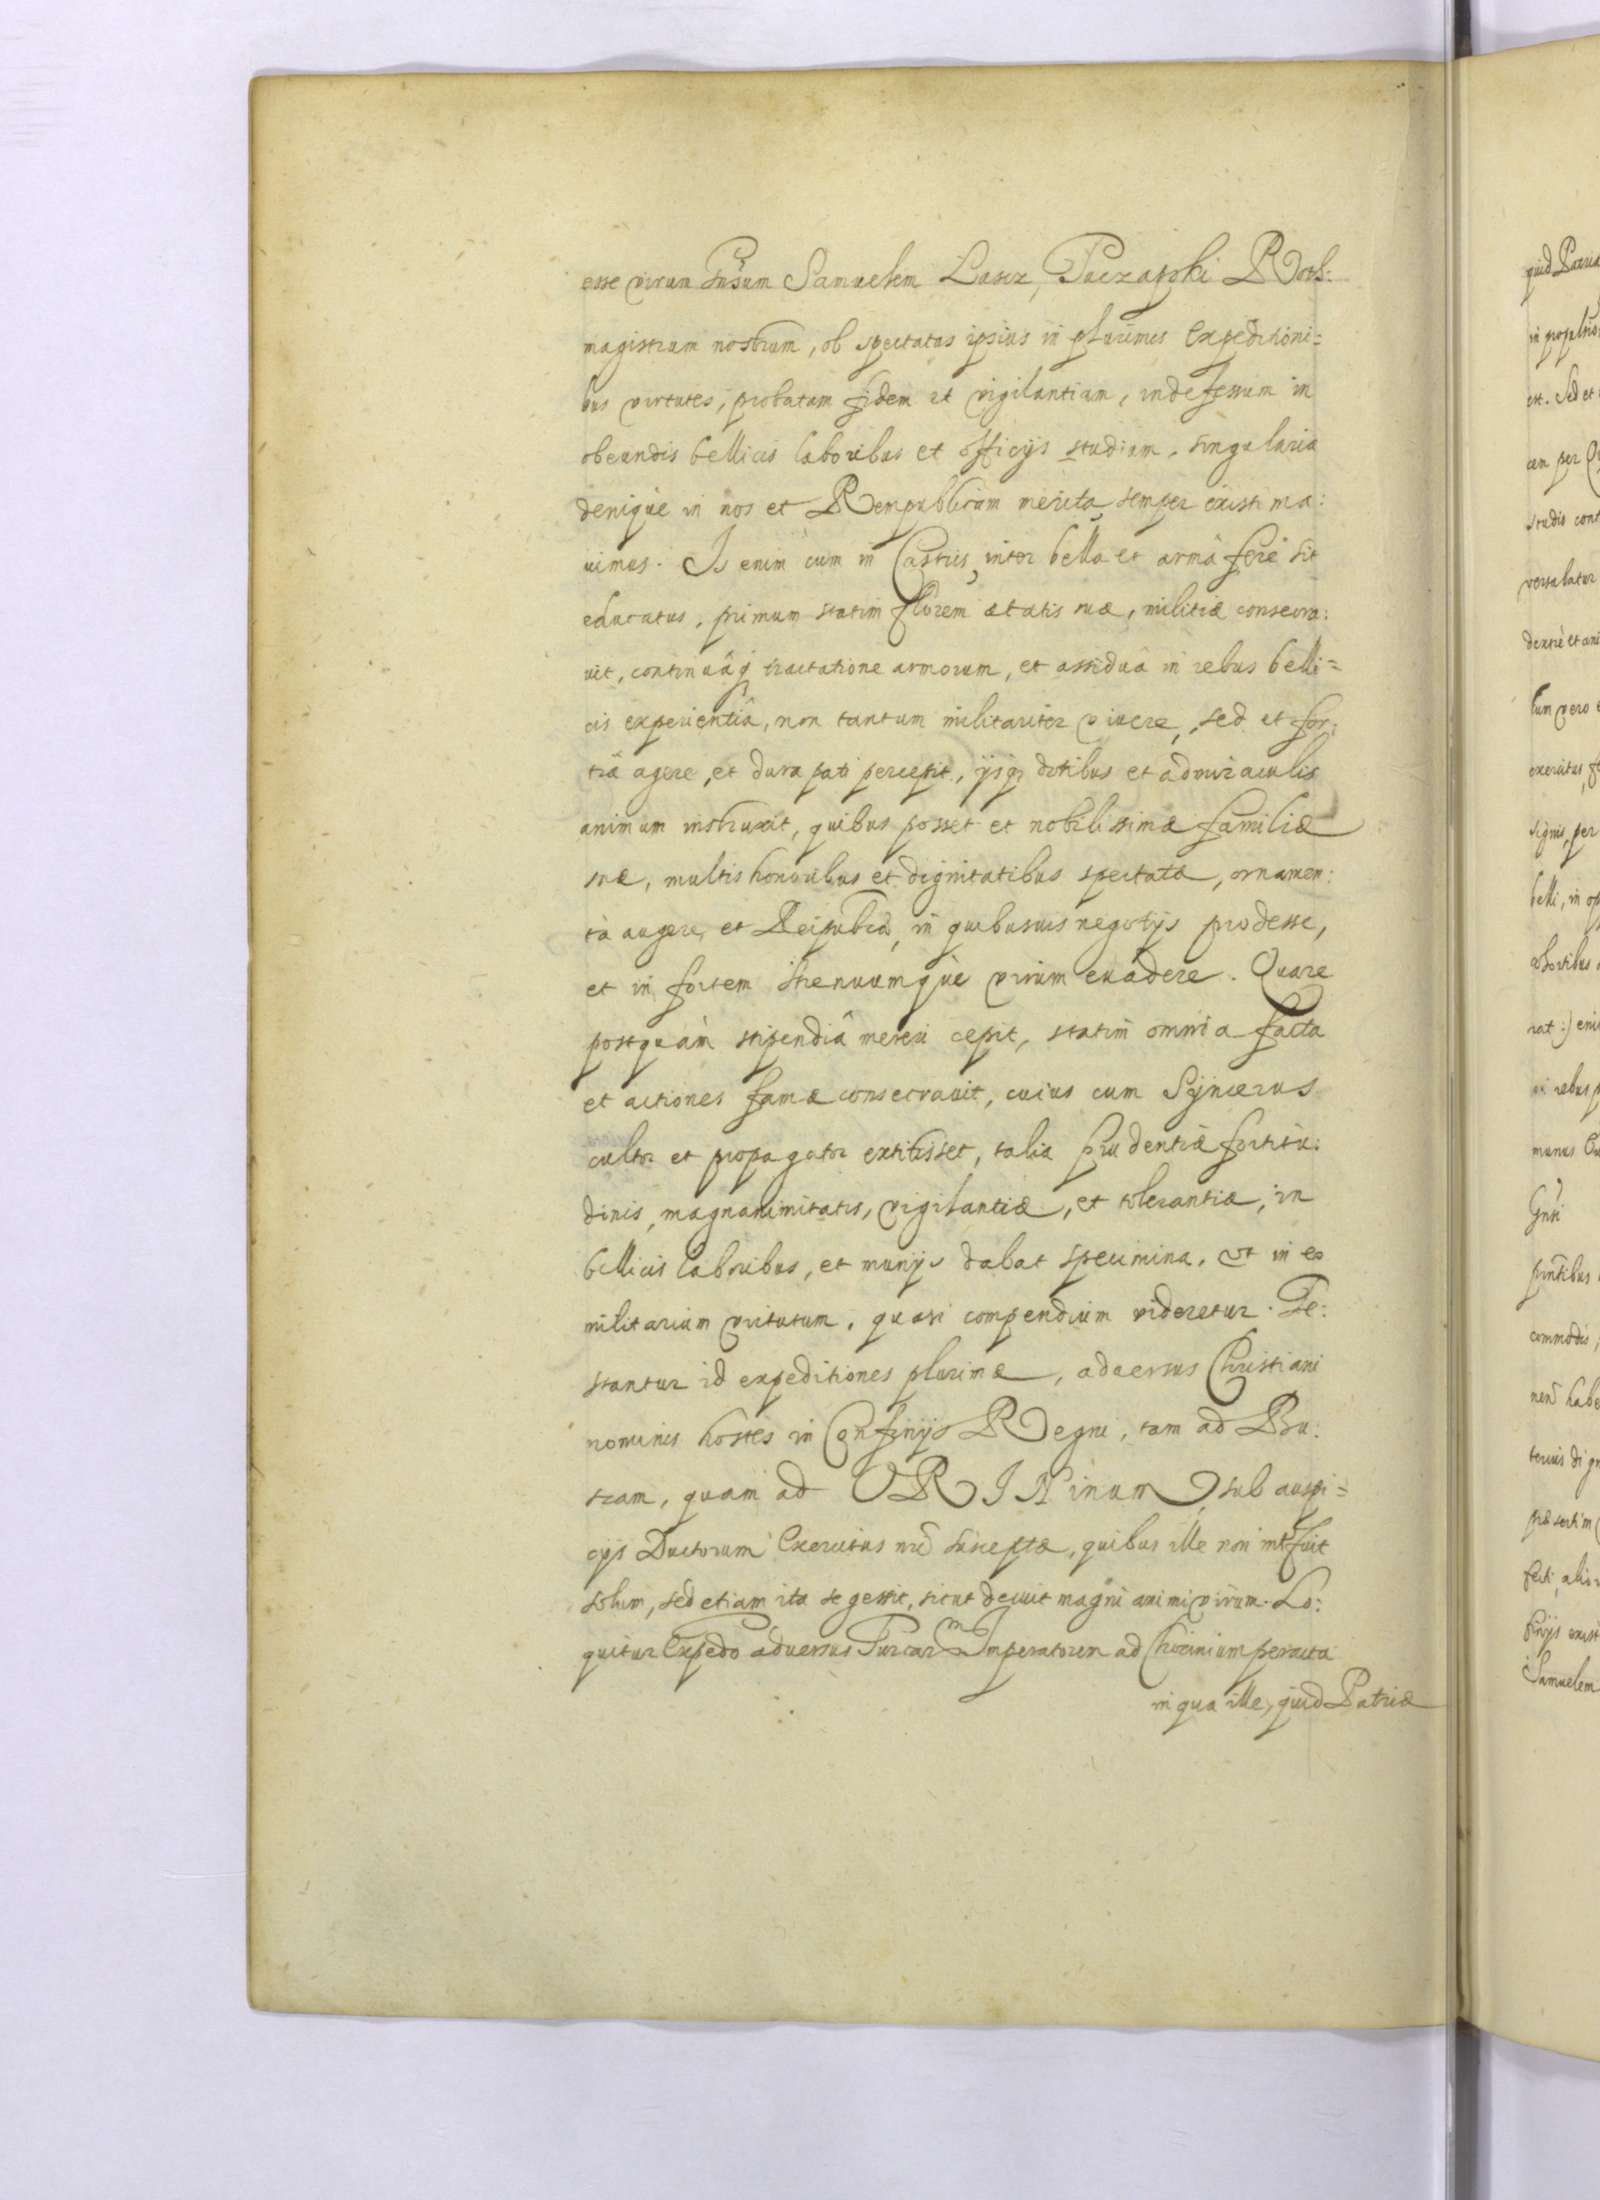 esse virum Gnsum Samuelem Lascz, Tuczapski Roth:
magistrum nostrum, ob spectatas ipsius in plurimis Expeditioni=
bus virtutes, probatam fidem et vigilantiam, indefessum in
obeundis bellicis laboribus et officijs studium, singularia
denique in nos et Rempublicam merita semper existima:
uimus. Is enim cum in Castris, inter bella et arma fere sit
educatus, primum statim florem ætatis suæ, militiæ consecra:
uit, continuâq; tractatione armorum, et assidua in rebus belli=
cis experientiâ, non tantum militariter viuere, sed et for:
tia agere, et dura pati percepit, ijsq; dotibus et admiraculis
animum instruxit, quibus posset et nobilissimæ familiæ
suæ, multis honoribus et dignitatibus spectatæ, ornamen:
ta augere, et Reipubcæ, in quibusuis negotijs prodesse,
et in fortem strenuumque virum euadere. Quare
postquàm stipendiâ mereri cepit, statim omnia facta
et actiones famæ consecrauit, cuius cum Syncerus
cultor et propagator extitisset, talia prudentiæ fortitu:
dinis, magnanimitatis, vigilantiæ, et tolerantiæ, in
bellicis laboribus, et munijs dabat specimina, vt in eo
militarium virtutum, quasi compendium videretur. Te:
stantur id expeditiones plurimæ, aduersus Christiani
nominis hostes in Confinijs Regni, tam ad Bu:
szam, quam ad ORINinum, sub auspi=
cijs Ductorum Exercitus nri susceptæ, quibus ille non intfuit
solum, sed etiam ita se gessit, sicut decuit magni animi virum. Lo:
quitur Expedo aduersus Turcarm Imperatorem ad Chocinium peracta
in qua ille, quid Patriæ
quid Patriæ
est. Sed et
Tum vero
exercitus
signis, per
belli, in
rebus
commodis,
Samuelem